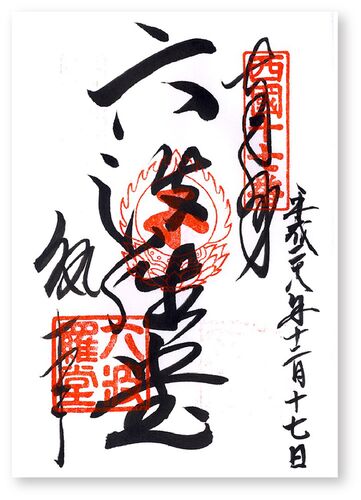 奉拝
西國十七番
平成二八年十二月十七日
六波羅堂
六波
羅堂